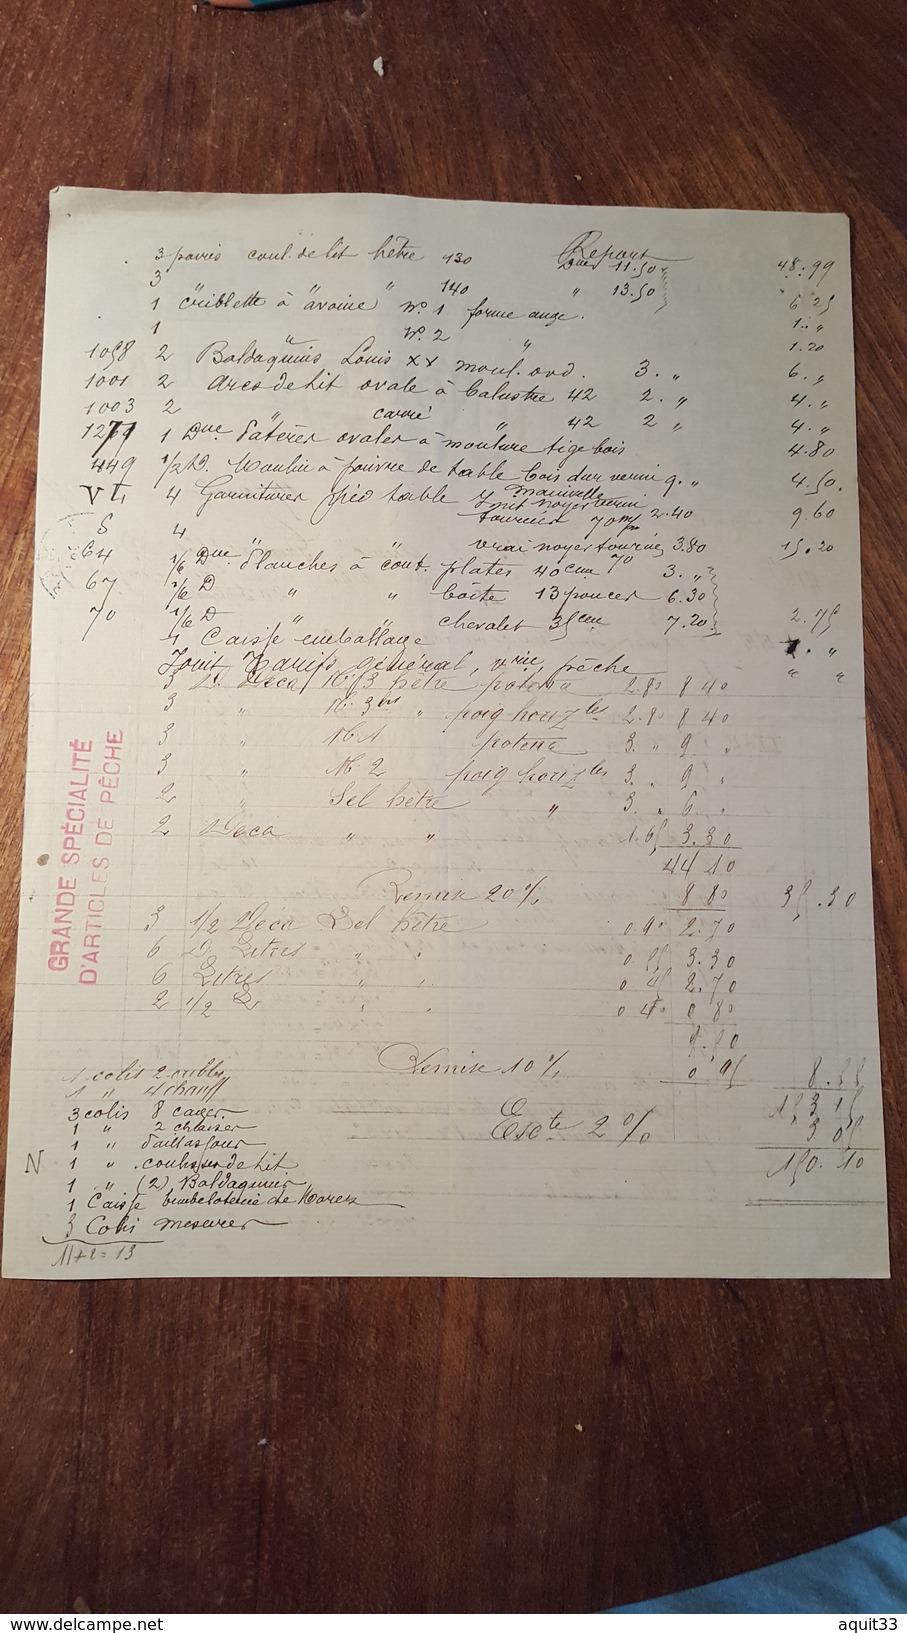 Report 48.99
3 paires coul. de lit hêtre 130 Dne 11.50
3 " " 140 " 13.50 6 25
1 Criblette à avoine No. 1 forme auge. 1. "
1 " No. 2 " 1.20
1058 2 Baldaquins Louis XV moul. ord. 3. " 6. "
1001 2 Arcs de lit ovale à balustre 42 2. " 4. "
1003 2 " carré " 42 2 " 4. "
1271 1 Dne Patères ovales à moulure tige bois 4.80
449 1/2 D. Moulin à poivre de table bois dur verni 9. " 4.50.
VL 4 Garnitures pied table 70 m/m 2.40 9.60
S 4 " " vrai noyer tourné 70 3.80 15.20
64 1/6 Dne Planches à cout. plates 40 cm 3. "
67 1/6 D " " boîte 13 pouces 6.30
70 1/6 D " chevalet 35 cm 7.20 2.75
1 Caisse emballage 1. "
Joint Tarifs général, pêche " "
3 D. Deca hêtre potence 2.80 8 40
3 " " poig horizles 2.80 8 40
3 " No 1 potence 3. " 9 "
3 " No. 2 poig horizles 3. " 9 "
2 " Sel hêtre " 3. " 6. "
2 Deca " " 1.65 3.30
44 10
Remise 20% 8 80 35.30
3 1/2 Deca Sel hêtre 0 90 2.70
6 D. Litres " " 0 55 3.30
6 Litres " " 0 45 2.70
2 1/2 L " " 0 40 0 80
9.50
Remise 10% 0 95 8.55
153 15
Escte 2% 3 05
150.10
GRANDE SPÉCIALITÉ
D'ARTICLES DE PÊCHE
1 colis 2 cribles
1 " 4 chauff
3 colis 8 cages
1 " 2 chaises
1 "
N 1 " coulisses de lit
1 " (2) Baldaquins
1 Caisse bimbeloterie de Morez
3 Colis mesures
11+2=13
http://www.delcampe.net
aquit33